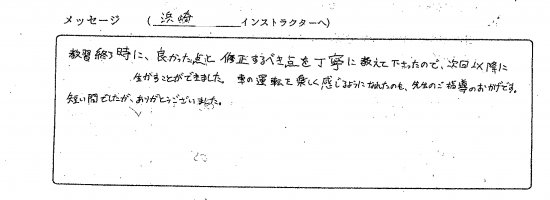 メッセージ （ 浜崎 インストラクターへ）
教習終了時に、良かった点と修正するべき点を丁寧に教えて下さったので、次回以降に
生かすことができました。車の運転を楽しく感じるようになれたのも、先生のご指導のおかげです。
短い間でしたが、ありがとうございました。